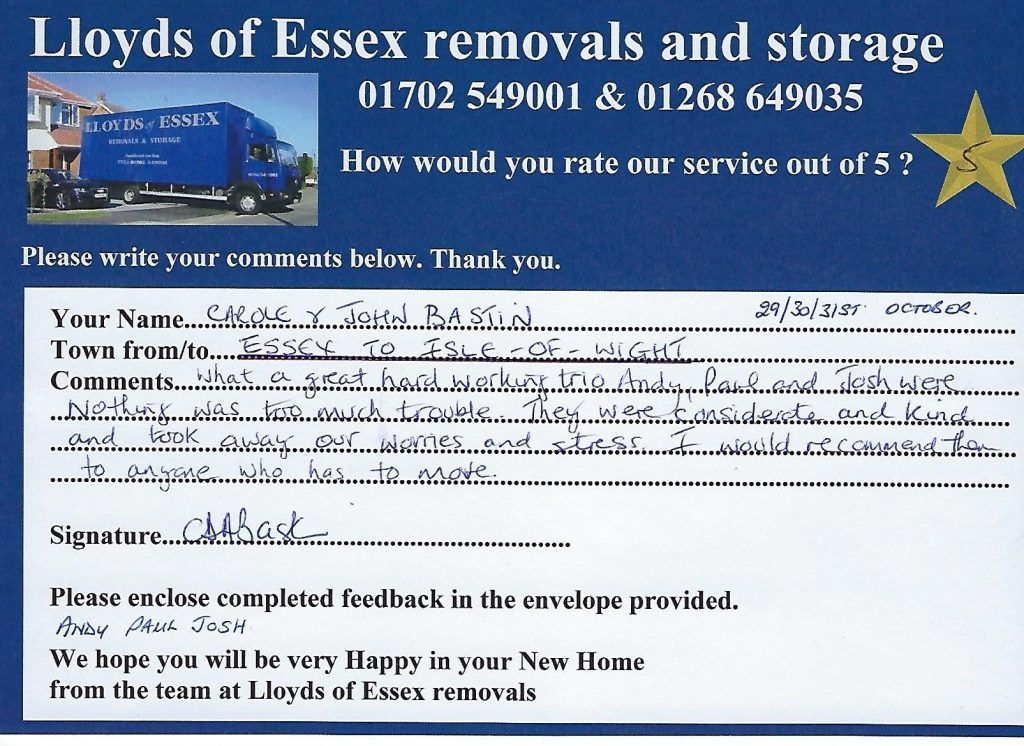 Lloyds of Essex removals and storage
01702 549001 & 01268 649035
LLOYDS of ESSEX
REMOVALS & STORAGE
How would you rate our service out of 5 ?
5
Please write your comments below. Thank you.
Your Name... CAROLE & JOHN BASTIN 29/30/31ST OCTOBER.
Town from/to... ESSEX TO ISLE-OF-WIGHT
Comments... What a great hard working trio Andy, Paul and Josh were
Nothing was too much trouble. They were considerate and kind
and took away our worries and stress. I would recommend them
to anyone who has to move.
Signature...
Please enclose completed feedback in the envelope provided.
ANDY PAUL JOSH
We hope you will be very Happy in your New Home
from the team at Lloyds of Essex removals